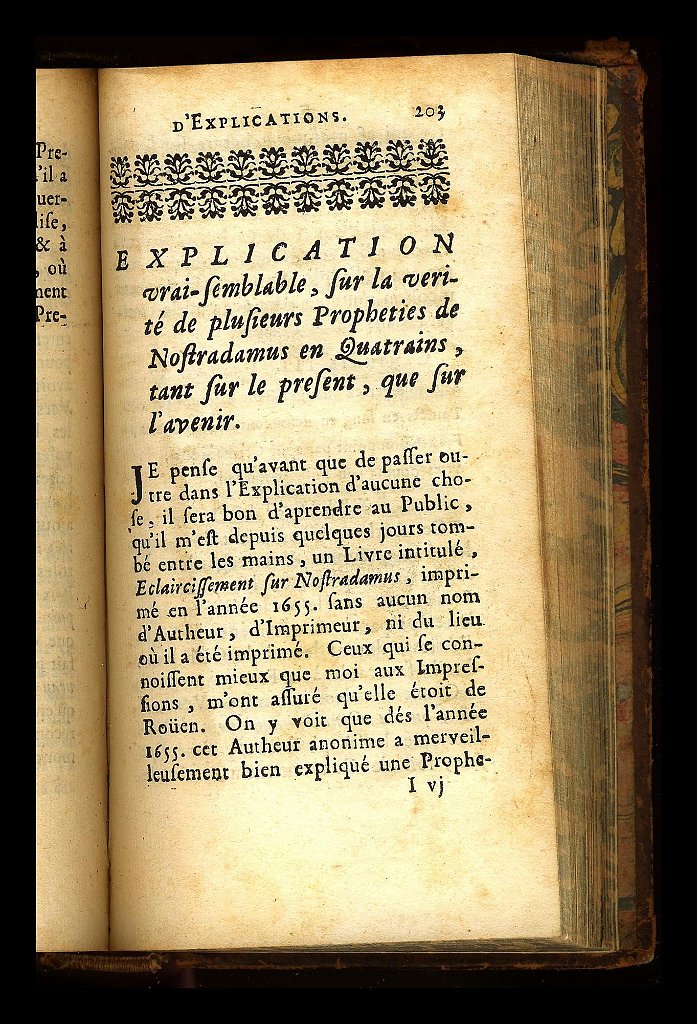 Pre-
'il a
uer-
lise,
& à
, où
ment
Pre-
D'EXPLICATIONS. 203
EXPLICATION
vrai-ſemblable, ſur la veri-
té de pluſieurs Propheties de
Noſtradamus en Quatrains,
tant ſur le preſent, que ſur
l'avenir.
JE penſe qu'avant que de paſſer ou-
tre dans l'Explication d'aucune cho-
ſe, il ſera bon d'aprendre au Public,
qu'il m'eſt depuis quelques jours tom-
bé entre les mains, un Livre intitulé,
Eclairciſſement ſur Noſtradamus, impri-
mé en l'année 1655. ſans aucun nom
d'Autheur, d'Imprimeur, ni du lieu
où il a été imprimé. Ceux qui ſe con-
noiſſent mieux que moi aux Impreſ-
ſions, m'ont aſſuré qu'elle étoit de
Roüen. On y voit que dés l'année
1655. cet Autheur anonime a merveil-
leuſement bien expliqué une Prophe-
I vj